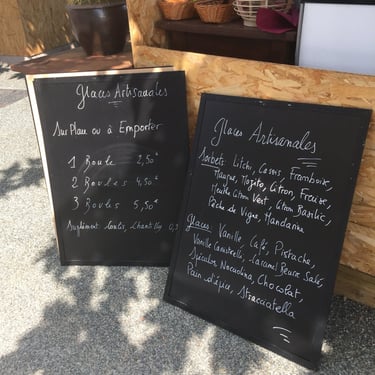 Glaces Artisanales
Sur Place ou à Emporter
1 Boule 2,50€
2 Boules 4,50€
3 Boules 5,50€
Supplément Coulis, Chantilly 0,5
Glaces Artisanales
Sorbets: Litchi, Cassis, Framboise,
Mangue, Mojito, Citron, Fraise,
Menthe Citron Vert, Citron Basilic,
Pêche de Vigne, Mandarine
Glaces: Vanille, Café, Pistache,
Vanille Caramel Beurre Salé,
Spéculos Nocciolina, Chocolat,
Pain d'épice, Stracciatella